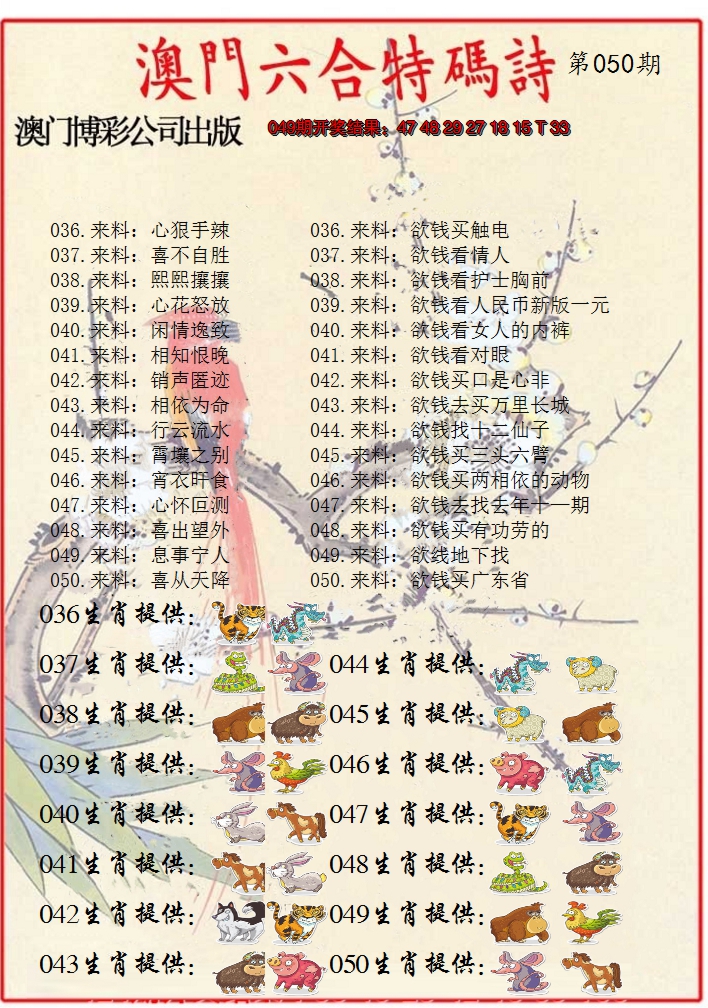 澳門六合特碼詩 第050期
澳门博彩公司出版 049期开奖结果：47 48 29 27 18 15 T 33
036.来料：心狠手辣 036.来料：欲钱买触电
037.来料：喜不自胜 037.来料：欲钱看情人
038.来料：熙熙攘攘 038.来料：欲钱看护士胸前
039.来料：心花怒放 039.来料：欲钱看人民币新版一元
040.来料：闲情逸致 040.来料：欲钱看女人的内裤
041.来料：相知恨晚 041.来料：欲钱看对眼
042.来料：销声匿迹 042.来料：欲钱买口是心非
043.来料：相依为命 043.来料：欲钱去买万里长城
044.来料：行云流水 044.来料：欲钱找十二仙子
045.来料：霄壤之别 045.来料：欲钱买三头六臂
046.来料：宵衣旰食 046.来料：欲钱买两相依的动物
047.来料：心怀叵测 047.来料：欲钱去找去年十一期
048.来料：喜出望外 048.来料：欲钱买有功劳的
049.来料：息事宁人 049.来料：欲线地下找
050.来料：喜从天降 050.来料：欲钱买广东省
036生肖提供：
037生肖提供： 044生肖提供：
038生肖提供： 045生肖提供：
039生肖提供： 046生肖提供：
040生肖提供： 047生肖提供：
041生肖提供： 048生肖提供：
042生肖提供： 049生肖提供：
043生肖提供： 050生肖提供：